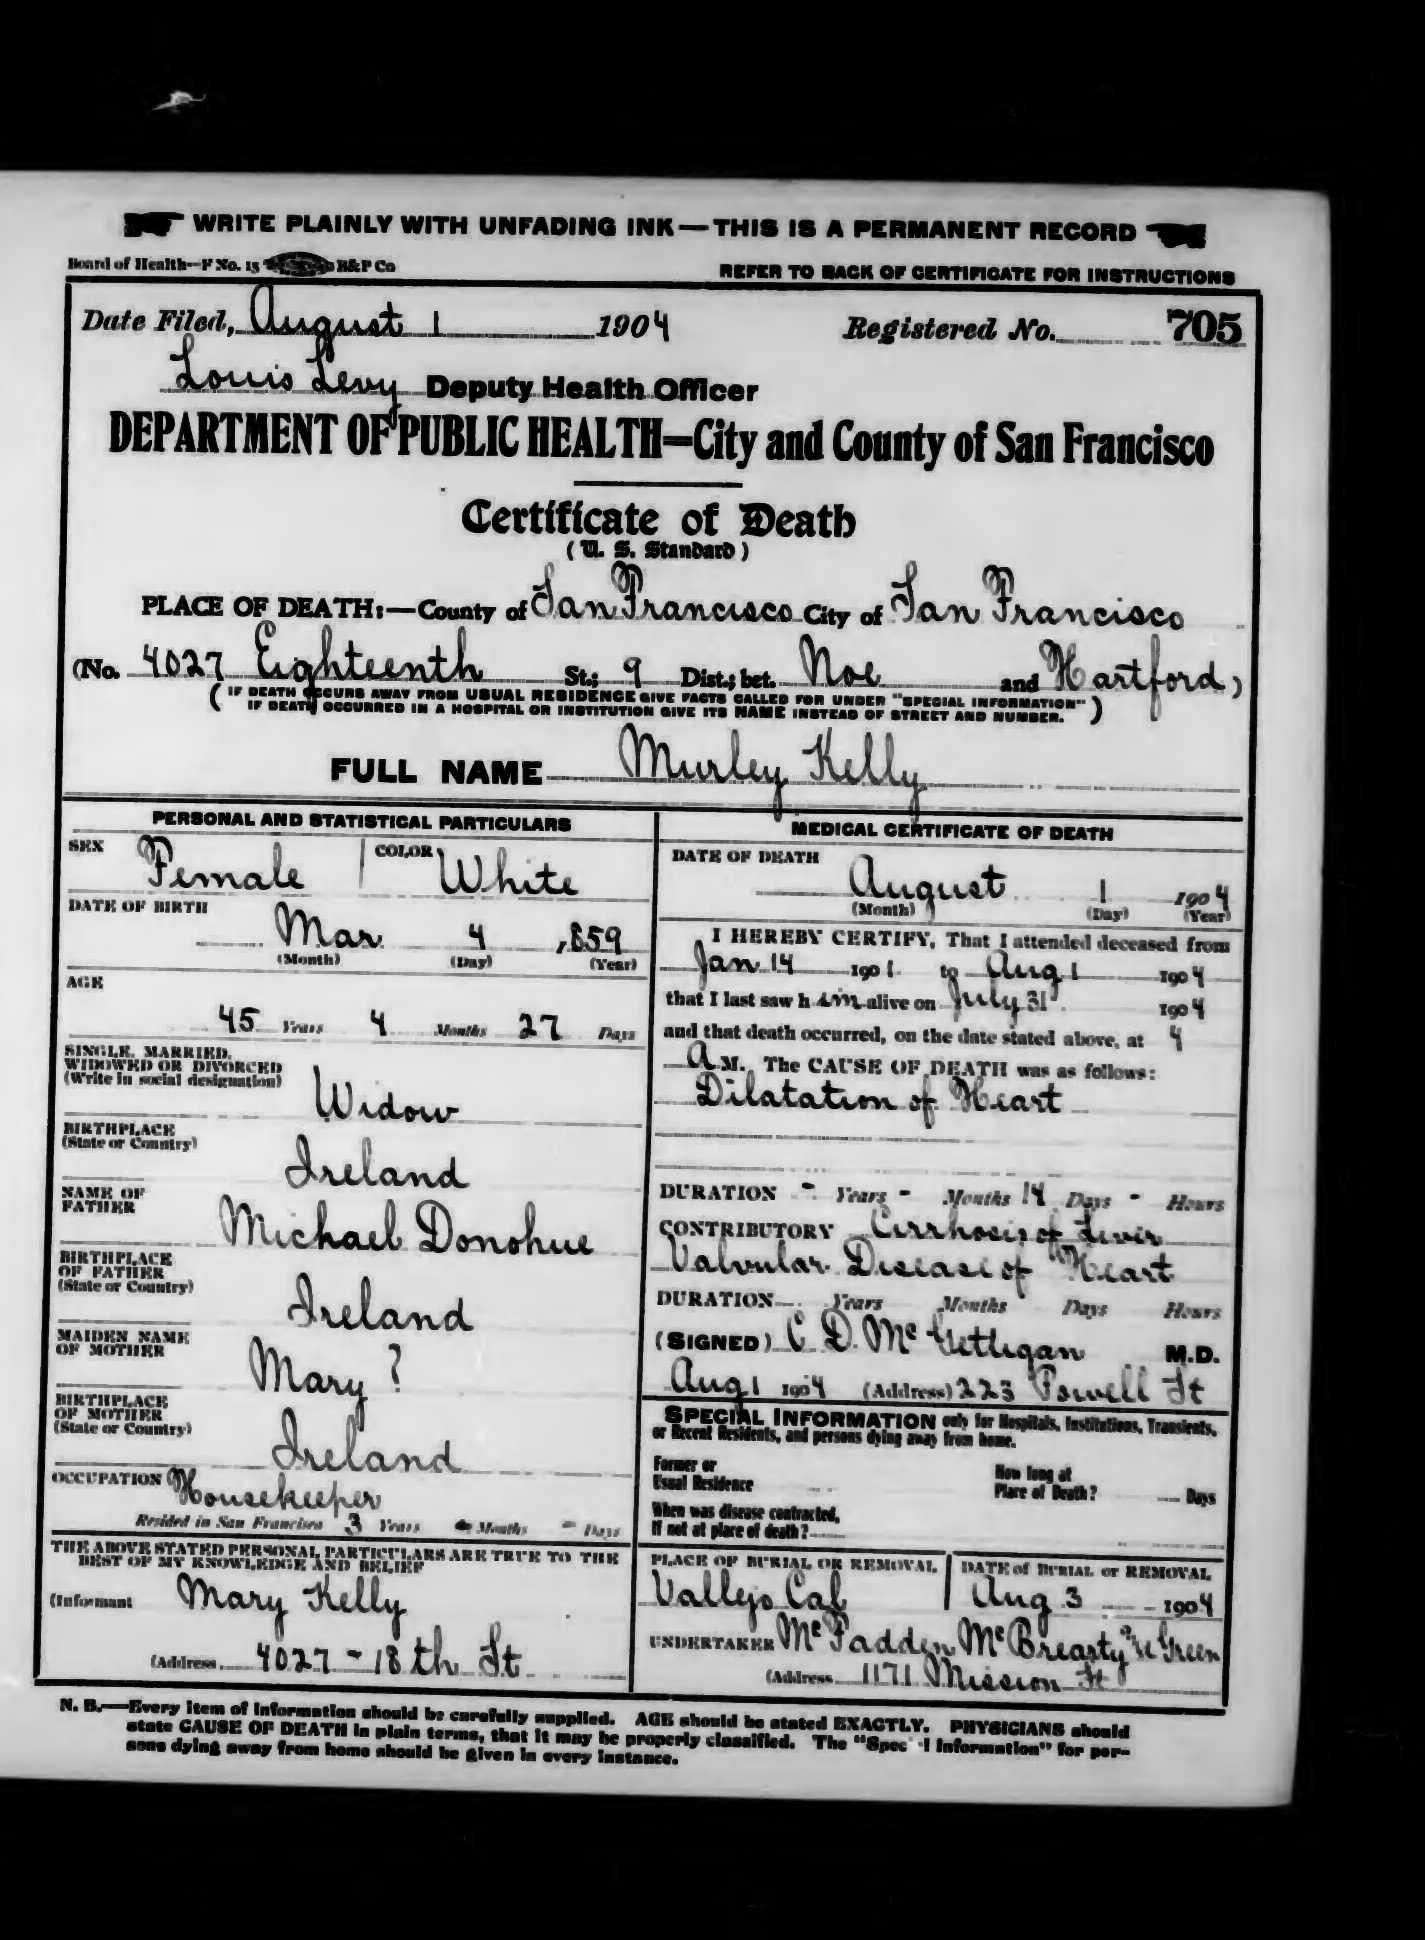 WRITE PLAINLY WITH UNFADING INK—THIS IS A PERMANENT RECORD
Board of Health—F No. 15 H&P Co
REFER TO BACK OF CERTIFICATE FOR INSTRUCTIONS
Date Filed, August 1 1904 Registered No. 705
Louis Levy Deputy Health Officer
DEPARTMENT OF PUBLIC HEALTH—City and County of San Francisco
Certificate of Death
(U. S. Standard)
PLACE OF DEATH:—County of San Francisco City of San Francisco
(No. 4027 Eighteenth St.; 9 Dist.; bet. Noe and Hartford)
(IF DEATH OCCURS AWAY FROM USUAL RESIDENCE GIVE FACTS CALLED FOR UNDER "SPECIAL INFORMATION"
IF DEATH OCCURRED IN A HOSPITAL OR INSTITUTION GIVE ITS NAME INSTEAD OF STREET AND NUMBER.)
FULL NAME Murley Kelly
PERSONAL AND STATISTICAL PARTICULARS
SEX Female COLOR White
DATE OF BIRTH
Mar 4 , 859
(Month) (Day) (Year)
AGE
45 Years 4 Months 27 Days
SINGLE, MARRIED,
WIDOWED OR DIVORCED
(Write in social designation)
Widow
BIRTHPLACE
(State or Country)
Ireland
NAME OF
FATHER
Michael Donohue
BIRTHPLACE
OF FATHER
(State or Country)
Ireland
MAIDEN NAME
OF MOTHER
Mary ?
BIRTHPLACE
OF MOTHER
(State or Country)
Ireland
OCCUPATION Housekeeper
Resided in San Francisco 3 Years - Months - Days
THE ABOVE STATED PERSONAL PARTICULARS ARE TRUE TO THE
BEST OF MY KNOWLEDGE AND BELIEF
(Informant Mary Kelly
(Address 4027 - 18th St
MEDICAL CERTIFICATE OF DEATH
DATE OF DEATH
August 1 1904
(Month) (Day) (Year)
I HEREBY CERTIFY, That I attended deceased from
Jan 14 1901 to Aug 1 1904
that I last saw h im alive on July 31 1904
and that death occurred, on the date stated above, at 4
A M. The CAUSE OF DEATH was as follows:
Dilatation of Heart
DURATION - Years - Months 14 Days - Hours
CONTRIBUTORY Cirrhosis of Liver
Valvular Disease of Heart
DURATION Years Months Days Hours
(SIGNED) C. D. McGettigan M.D.
Aug 1 1904 (Address) 223 Powell St
SPECIAL INFORMATION only for Hospitals, Institutions, Transients,
or Recent Residents, and persons dying away from home.
Former or
Usual Residence
How long at
Place of Death? Days
When was disease contracted,
If not at place of death?
PLACE OF BURIAL OR REMOVAL
Vallejo Cal
DATE of BURIAL or REMOVAL
Aug 3 1904
UNDERTAKER McFadden McBrearty & Green
(Address 1171 Mission St
N. B.—Every item of information should be carefully supplied. AGE should be stated EXACTLY. PHYSICIANS should
state CAUSE OF DEATH in plain terms, that it may be properly classified. The "Spec l Information" for per-
sons dying away from home should be given in every instance.